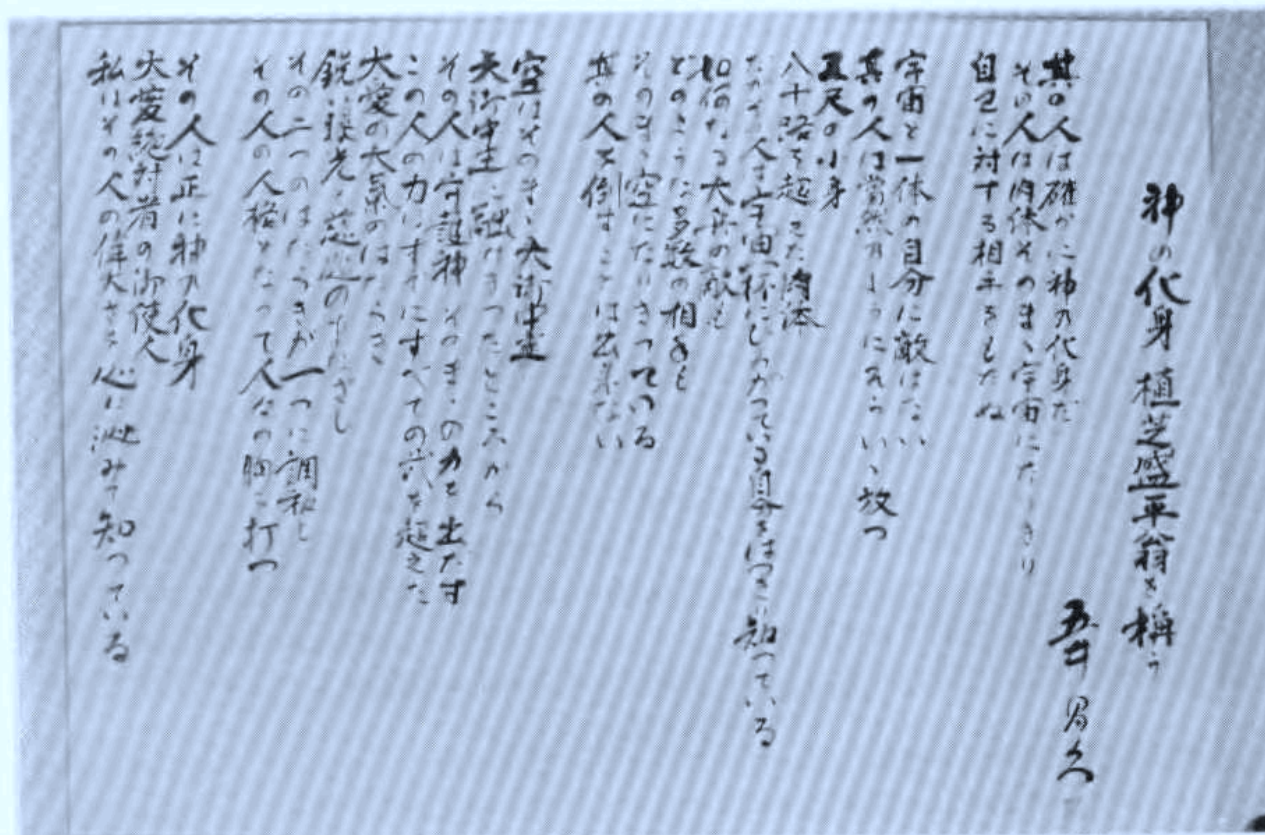 神の化身 植芝盛平翁を称う
五井昌久
其の人は確かに神の化身だ
その人は肉体そのまゝ宇宙になりきり
自己に対する相手をもたぬ
宇宙と一体の自分に敵はない
其の人は当然のようにそういゝ放つ
五尺の小身
八十路を超えた肉体
だがその人は宇宙一杯にひろがっている自分をはっきり知っている
如何なる大兵の敵も
どのような多数の相手も
そのまゝ空になりきっている
其の人を倒すことは出来ない
空はそのまゝ天御中主
天御中主に融けきったところから
その人は守護神そのまゝの力を出だす
この人の力はすでにすべての武を超えた
大愛の大気のはたらき
鋭い眼光と慈廸のまなざし
その二つのはたらきが一つに調和し
その人の人格となって人々の胸を打つ
その人は正に神の化身
大愛絶対者の御使人
私はその人の偉大さを心に沁みて知っている